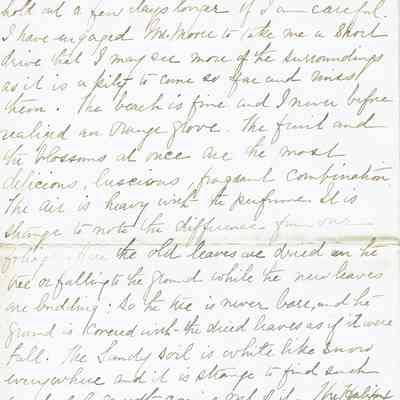 hold out a few days longer if I am careful.
I have engaged Mr. Moore to take me a short
drive that I may see more of the surroundings
as it is a pity to come so far and miss
them. The beach is fine and I never before
realized an orange grove. The fruit and
the blossoms at once are the most
delicious, luscious, fragrant combination
The air is heavy with the perfume. It is
strange to note the difference from our
foliage. Here the old leaves are dried on the
tree or falling to the ground while the new leaves
are budding: So the tree is never bare, and the
ground is covered with the dried leaves as if it were
Fall. The Sandy soil is white like snow
everywhere and it is strange to find such